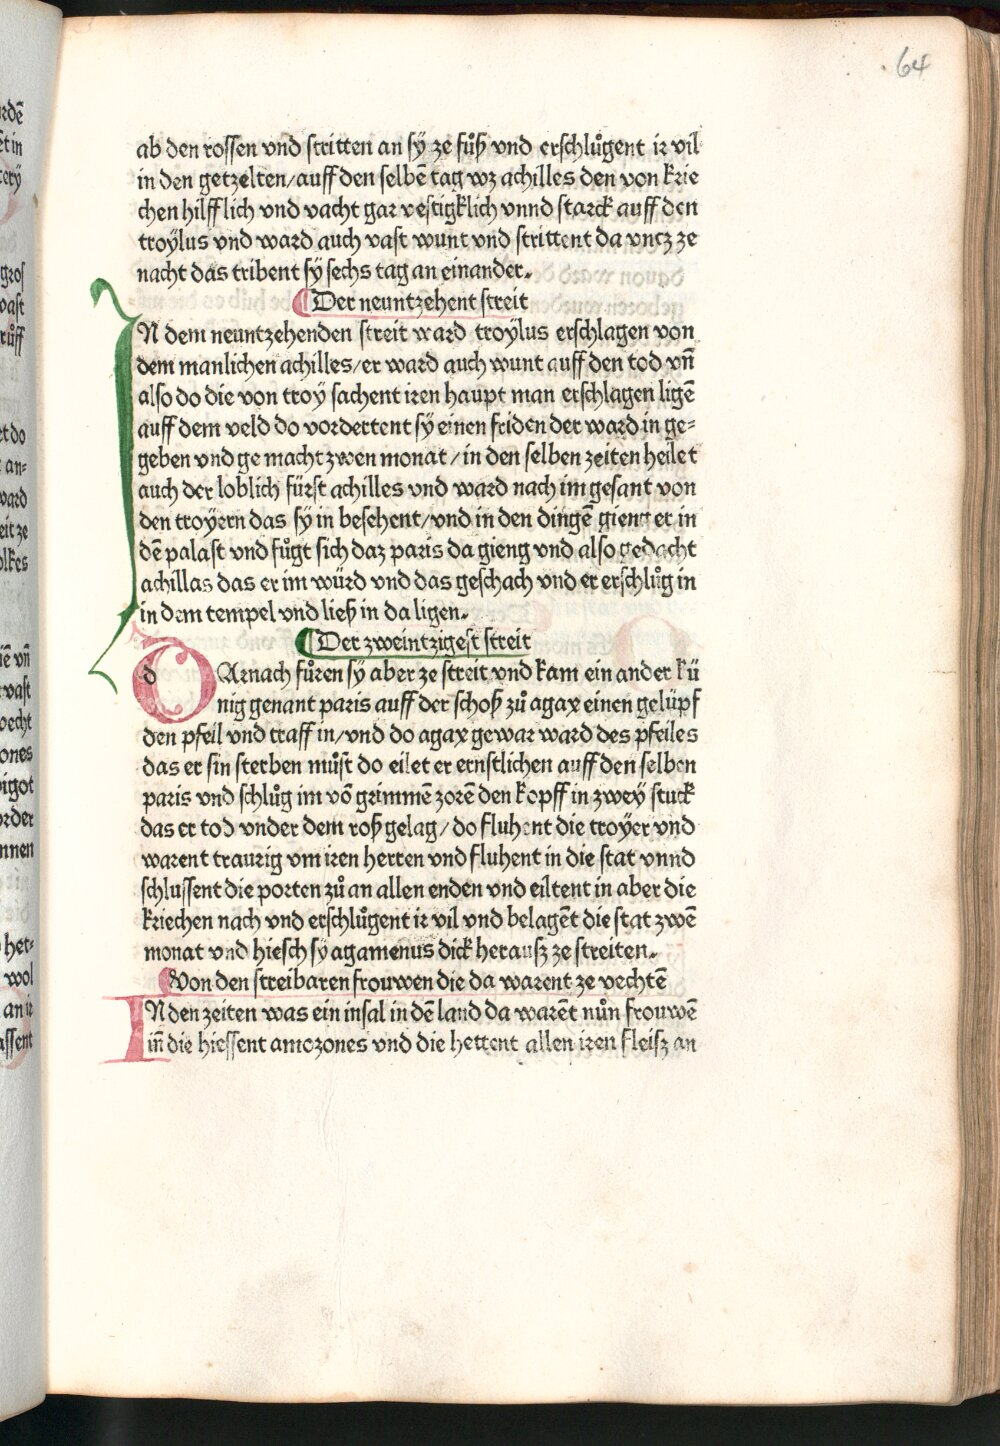 64
ab den rossen vnd stritten an sÿ ze fůß vnd erschlůgent ir vil
in den getzelten/auff den selbē tag wz achilles den von krie
chen hilfflich vnd vacht gar vestigklich vnnd starck auff den
troÿlus vnd ward auch vast wunt vnd strittent da vncz ze
nacht das tribent sÿ sechs tag an einander.
Der neuntzehent streit
IN dem neuntzehenden streit ward troÿlus erschlagen von
dem manlichen achilles/er ward auch wunt auff den tod vn̄
also do die von troÿ sachent iren haupt man erschlagen ligē
auff dem veld do vordertent sÿ einen friden der ward in ge⸗
geben vnd ge macht zwen monat/in den selben zeiten heilet
auch der loblich fürst achilles vnd ward nach im gesant von
den troÿern das sÿ in besehent/vnd in den dingē gieng er in
dē palast vnd fůgt sich daz paris da gieng vnd also gedacht
achillas das er im würd vnd das geschach vnd er erschlůg in
in dem tempel vnd ließ in da ligen.
Der zweintzigest streit
DArnach fůren sÿ aber ze streit vnd kam ein ander kü
nig genant paris auff der schoß zů agax einen gelüpf
den pfeil vnd traff in/vnd do agax gewar ward des pfeiles
das er sin sterben můst do eilet er ernstlichen auff den selben
paris vnd schlůg im vō grimmē zorē den kopff in zweÿ stuck
das er tod vnder dem roß gelag/do fluhent die troÿer vnd
warent traurig vm iren herren vnd fluhent in die stat vnnd
schlussent die porten zů an allen enden vnd eiltent in aber die
kriechen nach vnd erschlůgent ir vil vnd belagēt die stat zwē
monat vnd hiesch sÿ agamenus dick herausz ze streiten.
Von den streibaren frouwen die da warent ze vechtē
IN den zeiten was ein insal in dē land da warēt nůn frouwē
in̄ die hiessent amozones vnd die hettent allen iren fleisz an